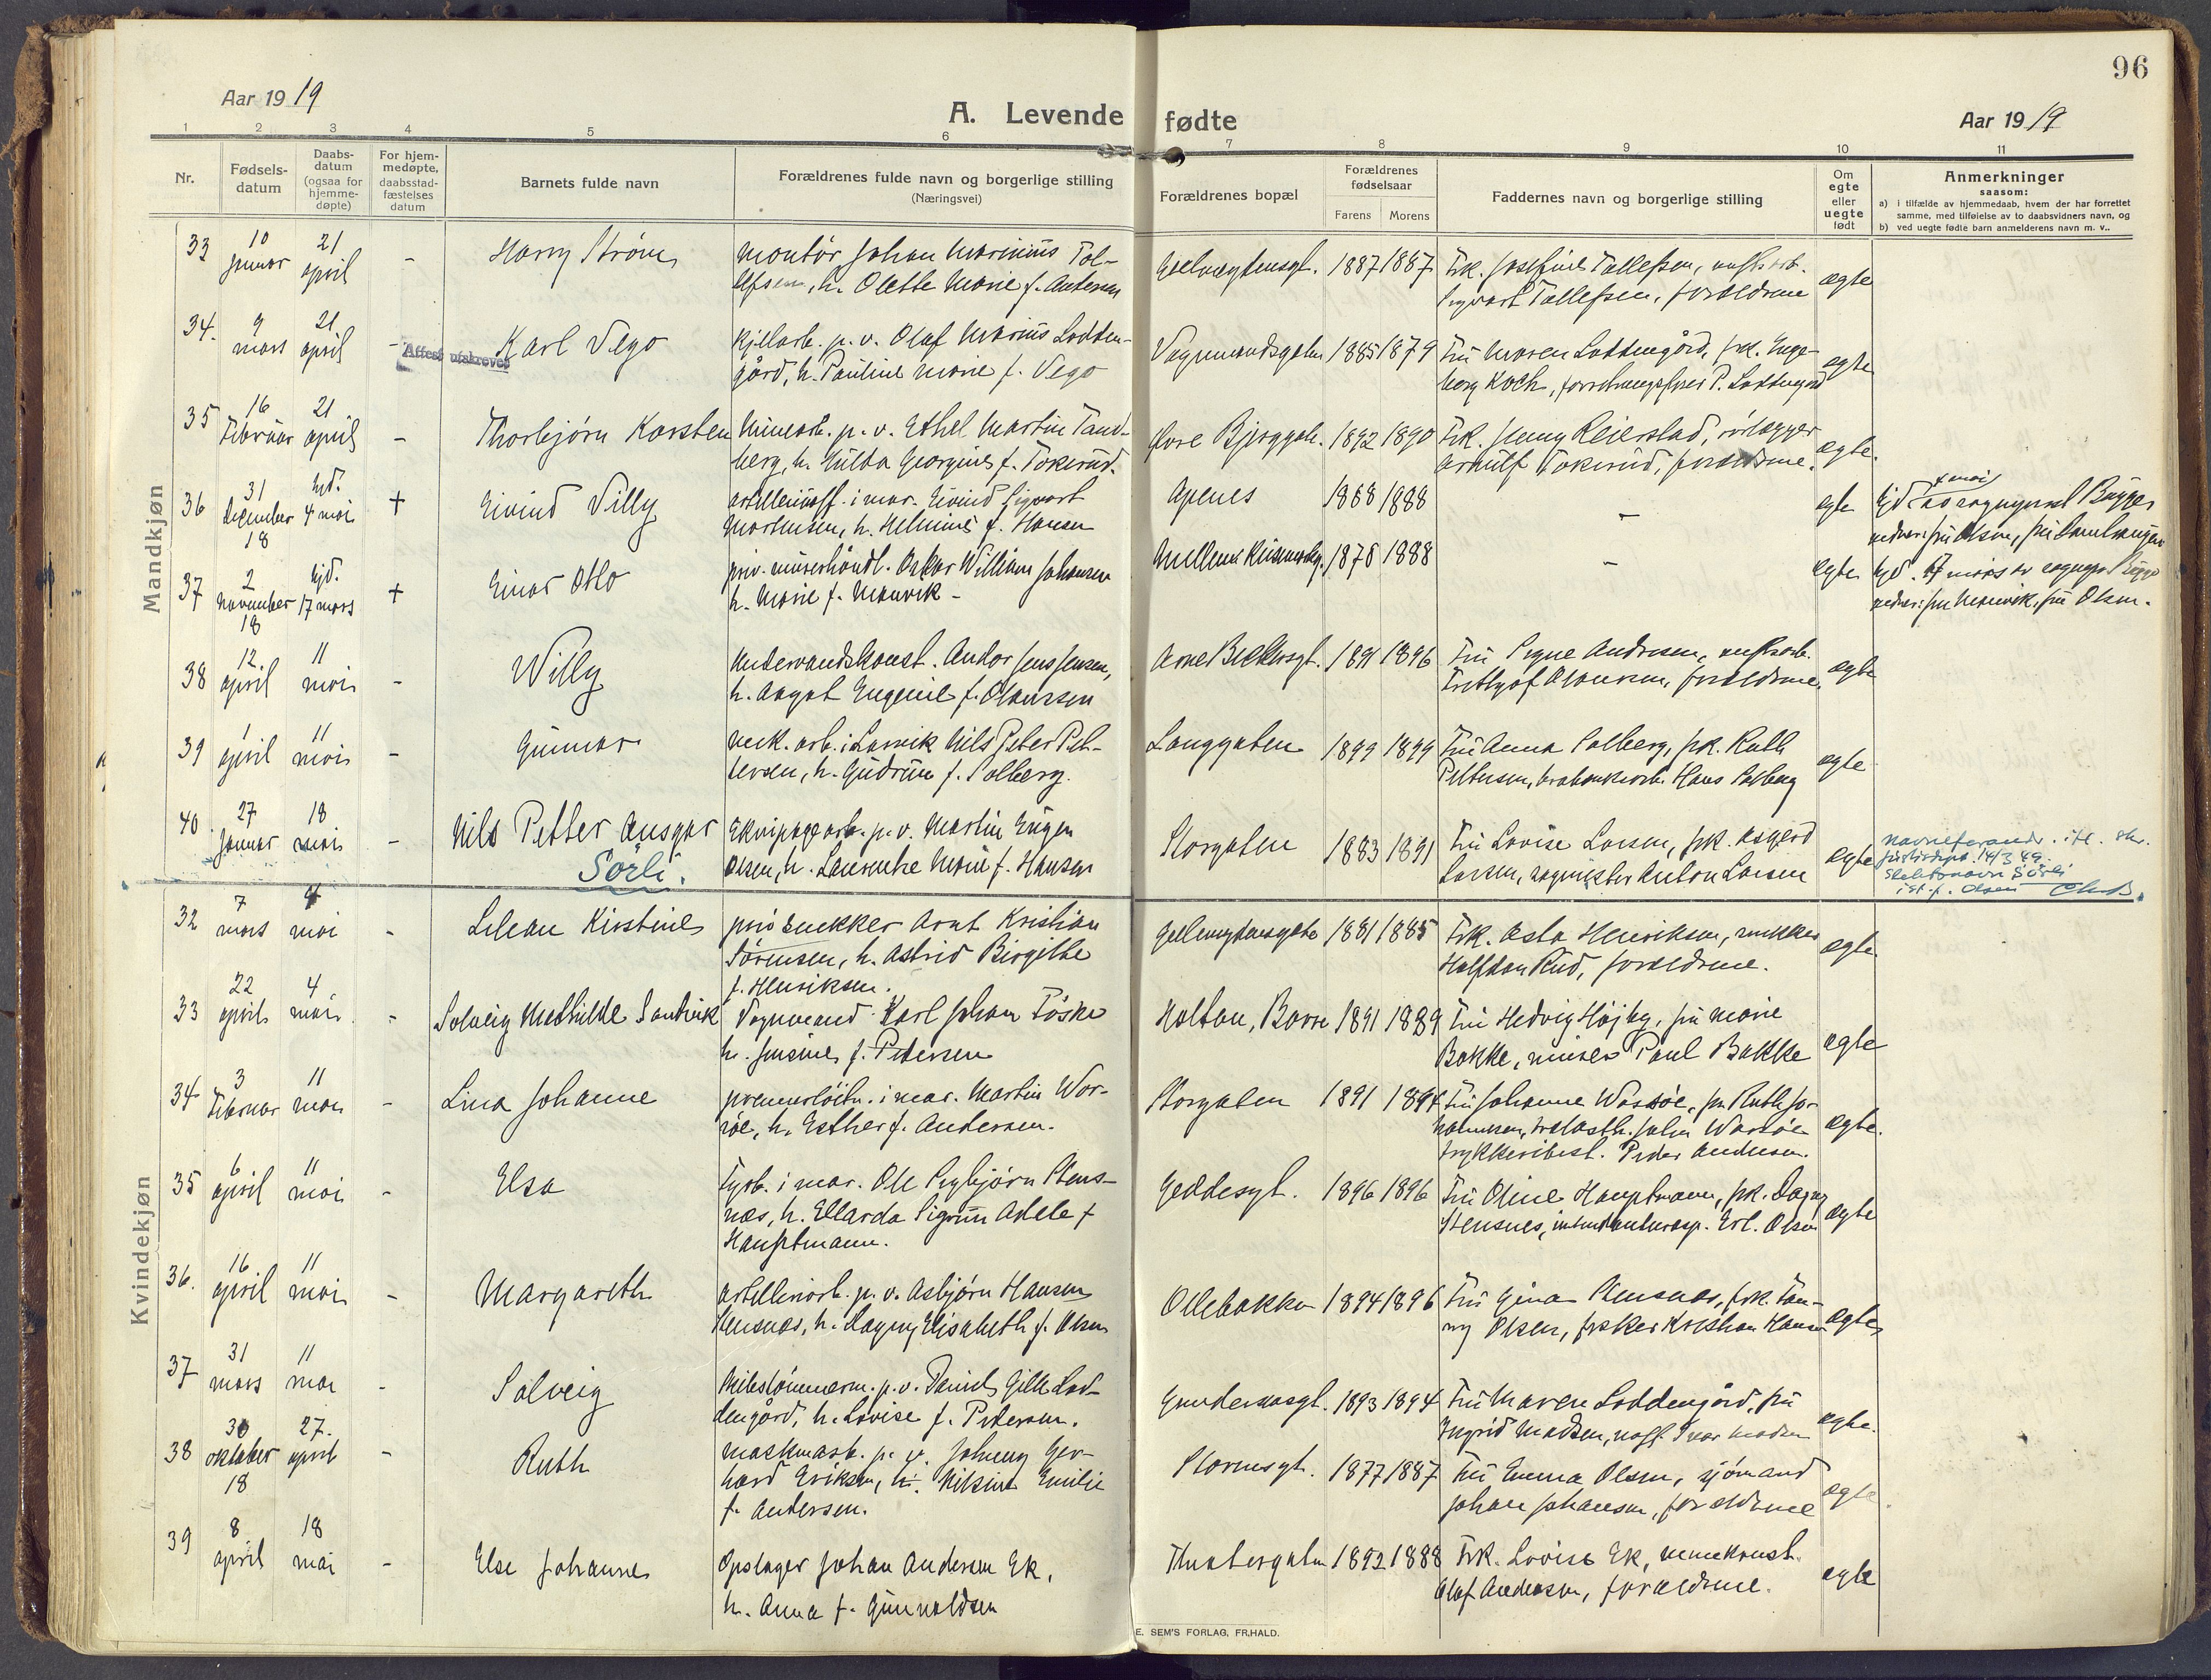 96
Aar 1919
A. Levende fødte
Aar 1919
1 2 3 4 5 6 7 8 9 10 11
Nr.
Fødsels-
datum
Daabs-
datum
(ogsaa for
hjemme-
døpte)
For hjem-
medøpte,
daabsstad-
fæstelses
datum
Barnets fulde navn
Forældrenes fulde navn og borgerlige stilling
(Næringsvei)
Forældrenes bopæl
Forældrenes
fødselsaar
Farens Morens
Faddernes navn og borgerlige stilling
Om
egte
eller
uegte
født
Anmerkninger
saasom:
a) i tilfælde av hjemmedaab, hvem der har forrettet
samme, med tilføielse av to daabsvidners navn, og
b) ved uegte fødte barn anmelderens navn m. v..
Mandkjøn
33 10 januar 21 april - Harry Strøm
montør Johan Marinius Tol-
lefsen, h. Olette Marie f. Andersen
1887 1887
Frk. Josefine Tollefsen,
Sigvart Tollefsen, forældrene
egte
34. 9 mars 21 april - Karl Vego
Attest utskrevet
kjelarb. p. v. Olaf Marius Lodden-
gård, h. Pauline Marie f. Vego
Vognmandsgaten 1885 1879
Fru Maren Loddengård, frk. Inge-
borg Koch, P. Loddengård
egte
35 16 Februar 21 april - Thorbjørn Karsten
Minearb. p. v. Ethel Martin Tand-
berg, h. Hilda Georgine f. Tokerud.
Øvre Bjerggate. 1892 1890
Frk. Jenny Reierstad, rørlægger
Arnulf Tokerud, forældrene.
egte.
36 31 december 18 hjd. 4 mai + Eivind Villy
i mar. Eivind Sigvart
Mortensen, h. Helmine f. Hansen
Apenes 1888 1888
-
egte
4 mai
hjd. av sogneprest Bugge
37 2 november 18 hjd. 17 mars + Einar Otto
priv. Oskar William Johansen
h. Marie f. Manvik -
1878 1888
-
egte
hjd. 17 mars av sognepr. Bugge
vidner: fru Manvik, fru Olsen.
38 12. april 11 mai - Willy
Undervandskonst. Andor Jens Jensen,
h. Aagot Eugenie f. Olaussen
Arne Bekkersgt. 1891 1896
Fru Signe Andresen,
Frithjof Olaussen, forældrene.
egte
39 1 april 11 mai - Gunnar
mek. arb. i Larvik Nils Peter Pet-
tersen, h. Gudrun f. Solberg.
Langgaten 1899 1899
Fru Anna Solberg, frk. Ruth
Pettersen, Hans Solberg
egte
40. 27 januar 18 mai - Nils Petter Ansgar
Sørli.
Ekvipagearb. p. v. Martin Eugen
Olsen, h. Laurentze Marie f. Hansen
Storgaten 1883 1891
Fru Lovise Larsen, frk. Asgerd
Larsen, sagmester Anton Larsen
egte
navneforandr. itl. skr.
justisdept. 14/3 49.
Slektsnavn Sørli
ist. f. Olsen
Kvindekjøn
32 7 mars 4 mai - Lilean Kirstine
pris snekker Arnt Kristian
Sørensen, h. Astrid Birgitte
f. Henriksen.
1881 1885
Frk. Asta Henriksen, snekker
Halfdan Rud, forældrene.
egte
33 22 april 4 mai - Solveig Mathilde Sandvik
Vognmand Karl Johan Föske
h. Jensine f. Petersen
Holtan, Borre 1891 1889
Fru Hedvig Højby, fru Marie
Bakke, murer Paul Bakke
egte
34 3 Februar 11 mai - Lina Johanne
premierløitn. i mar. Martin Wor-
söe, h. Esther f. Andersen.
Storgaten 1891 1894
Fru Johanne Worsöe, fru Ruth Jo-
hannesen, John Worsöe
trykkeribest. Peder Andersen.
egte.
35 6 april 11 mai - Elsa
Fyrb. i mar. Ole Sigbjørn Stens-
nes, h. Ellarda Sigrun Adele f
Hauptmann.
Geddesgt. 1896 1896
Fru Oline Hauptmann, frk. Dagny
Stensnes, Erl. Olsen
egte
36. 16 april 11 mai - Margareth
artilleriarb. p. v. Asbjørn Hansen
Stensnes, h. Dagny Elisabeth f. Olsen
Ollebakken 1894 1896
Fru Gina Stensnes, frk. Fan-
ny Olsen, fisker Kristian Hansen
egte
37 31 mars 11 mai - Solveig
Skibstømmerm. p. v. Daniel Gille Lod-
dengård, h. Lovise f. Petersen.
Gundersosgt. 1893 1894
Fru Maren Loddengård, fru
Ingrid Madsen, uoff. Ivar Madsen
egte.
38 30 oktober 18 27. april - Ruth
maskinarb. p. v. Johnny Ger-
hard Eriksen, h. Nilsine Emilie
f. Andersen.
Stornesgt. 1877 1887
Fru Emma Olsen, sjømand
Johan Johansen, forældrene
egte.
39 8 april 18 mai - Else Johanne
Opslager Johan Andersen Ek,
h. Anna f. Gunnaldsen
1892 1888
Frk. Lovise Ek, minekonst.
Olaf Andersen, forældrene.
egte
E. SEM'S FORLAG, FR.HALD.